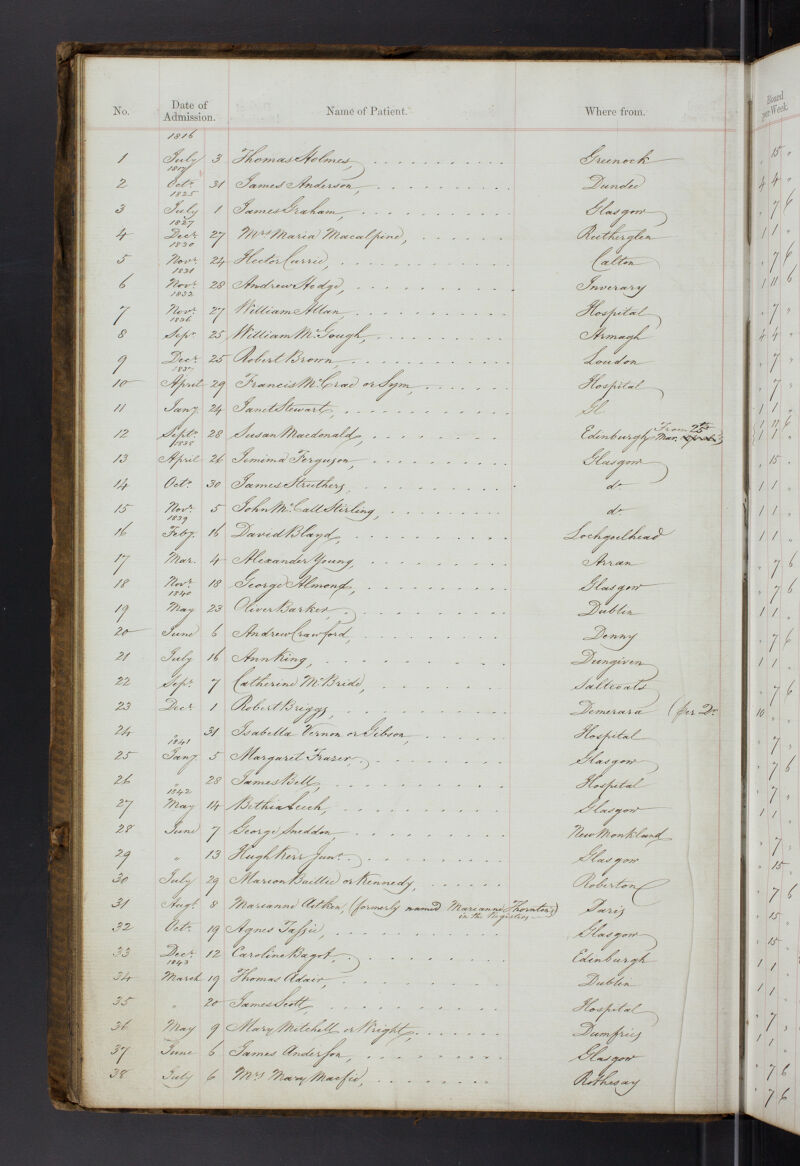 No. Date of Admission. Name of Patient. Where from. Board per Week
1816
1 July 3 Thomas Holmes, Greenock 15 "
2 Octr. 31 James Anderson, Dundee 4 4 "
1825
3 July 1 James Graham, Glasgow " 7 6
1827
4 Decr. 27 Mrs Maria Macalpine, Rutherglen 1 1 "
1830
5 Novr. 24 Hector Currie, Calton " 7 6
1831
6 Novr. 28 Andrew Hodge, Inverary 1 11 6
1832
7 Novr. 27 William Allan, Hospital " 7 "
1836
8 Sepr. 25 William McGough, Armagh 4 4 "
9 Decr. 25 Robert Brown London " 7 "
10 April 29 Francis McCrae or Sym, Hospital " 7 "
11 Jany. 24 Janet Stewart, Gl 1 1 "
12 Septr. 28 Susan Macdonald, Edinburgh From 25th Mar. 1 11 6
1838
13 April 26 Jemima Ferguson, Glasgow " 15 "
14 Octr. 30 James Struthers, do 1 1 "
15 Novr. 5 John McCall Stirling, do 1 1 "
1839
16 Feby. 16 David Bland, Lochgoilhead 1 1 "
17 Mar. 4 Alexander Young, Arran " 7 6
18 Novr. 18 George Almond, Glasgow " 7 6
1840
19 May 23 Oliver Barker, Dublin 1 1 "
20 June 6 Andrew Crawford, Denny " 7 6
21 July 16 Ann King, Dungiven 1 1 "
22 Sepr. 7 Catherine McBride, Saltcoats " 7 6
23 Decr. 1 Robert Briggs, Demerara (per Dr 10
24 " 31 Isabella Vernon or Gibson, Hospital " 7 "
1841
25 Jany. 5 Margaret Frazer, Glasgow " 7 6
26 " 28 James Bell, Hospital " 7 "
1842
27 May 14 Bethia Leech, Glasgow 1 1 "
28 June 7 George Sneddon New Monkland " 7 "
29 " 13 Hugh Kerr Junr. Glasgow " 15 "
30 July 29 Marion Baillie or Kennedy, Roberton " 7 6
31 Augt. 8 Marianne Aitken, (formerly named Marianne Thornton) Paris " 15 "
in the Registers
32 Oct. 19 Agnes Tassie, Glasgow " 15 "
33 Decr. 12 Caroline Bagot, Edinburgh 1 1 "
1843
34 March 19 Thomas Adair, Dublin 1 1 "
35 " 20 James Scott, Hospital " 7 "
36 May 9 Mary Mitchell or Wright, Dumfries 1 1 "
37 June 6 James Anderson, Glasgow " 7 6
38 July 6 Mrs Mary Macfie, Rothesay " 7 6